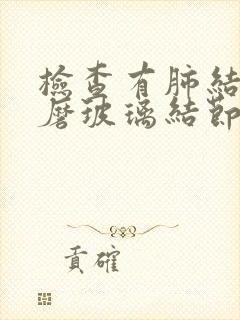 檢查有肺結
磨玻璃結節
貢確